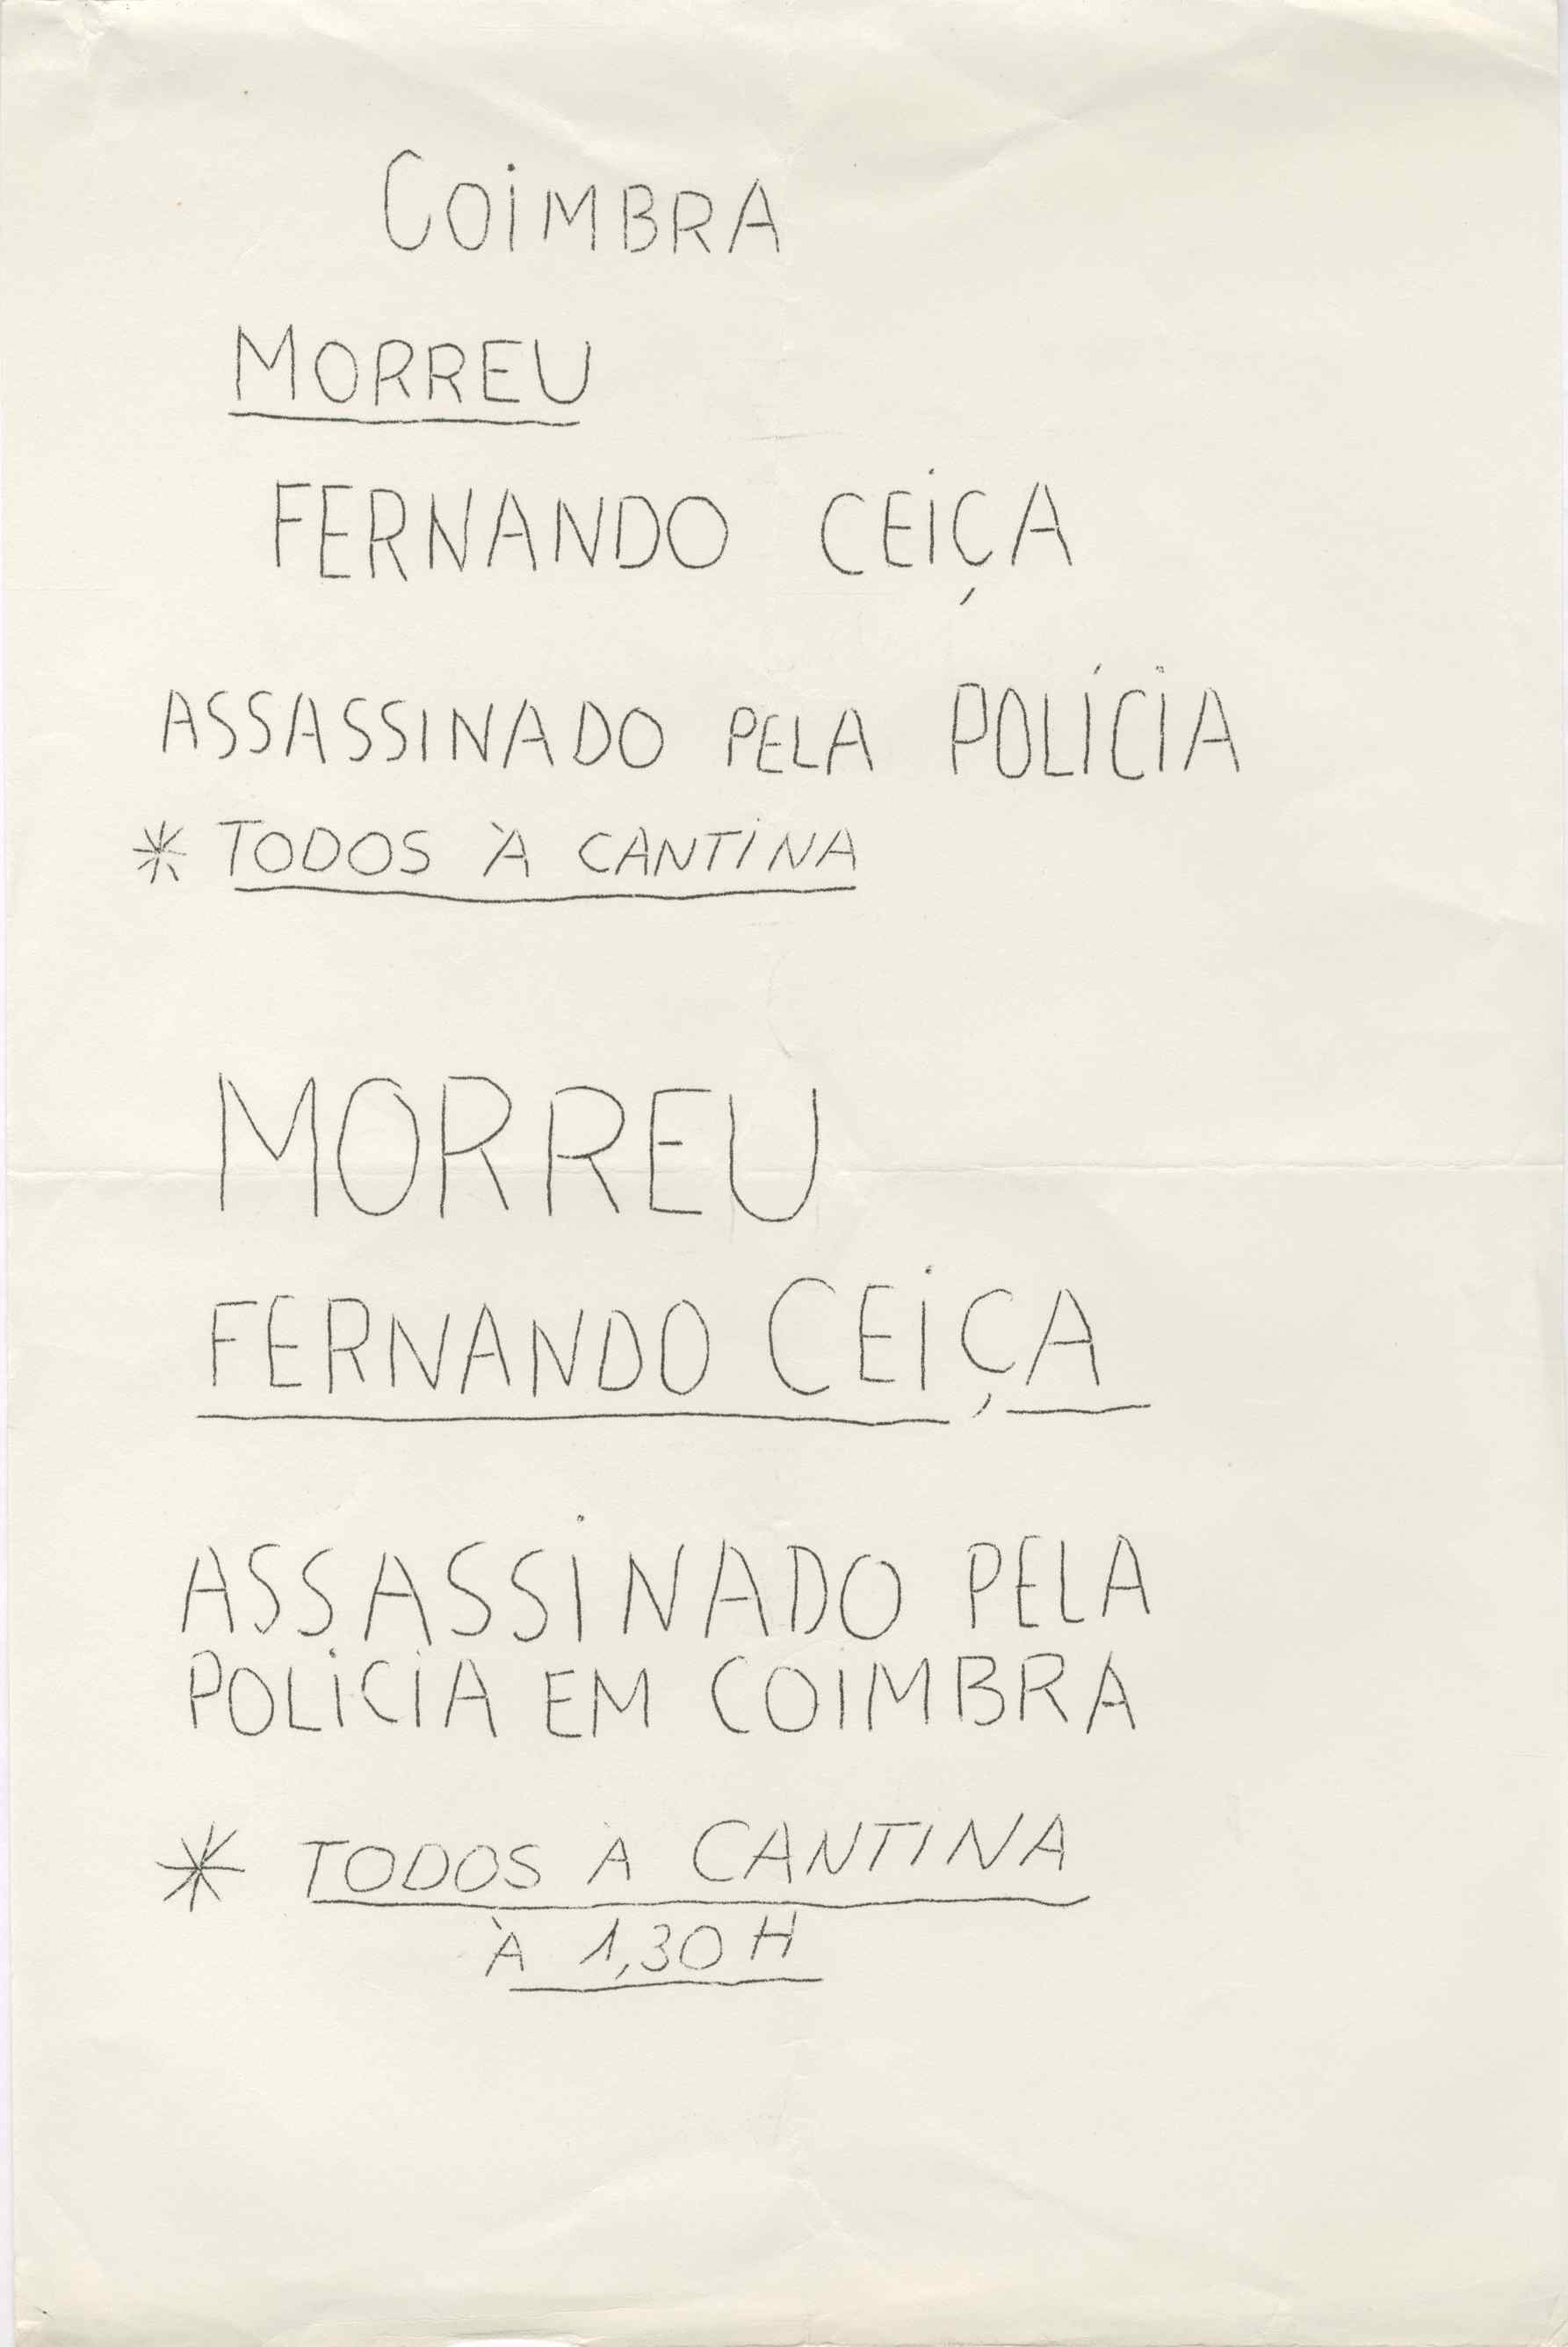 COIMBRA
MORREU
FERNANDO CEIÇA
ASSASSINADO PELA POLÍCIA
* TODOS À CANTINA
MORREU
FERNANDO CEIÇA
ASSASSINADO PELA
POLICIA EM COIMBRA
* TODOS À CANTINA
À 1,30 H